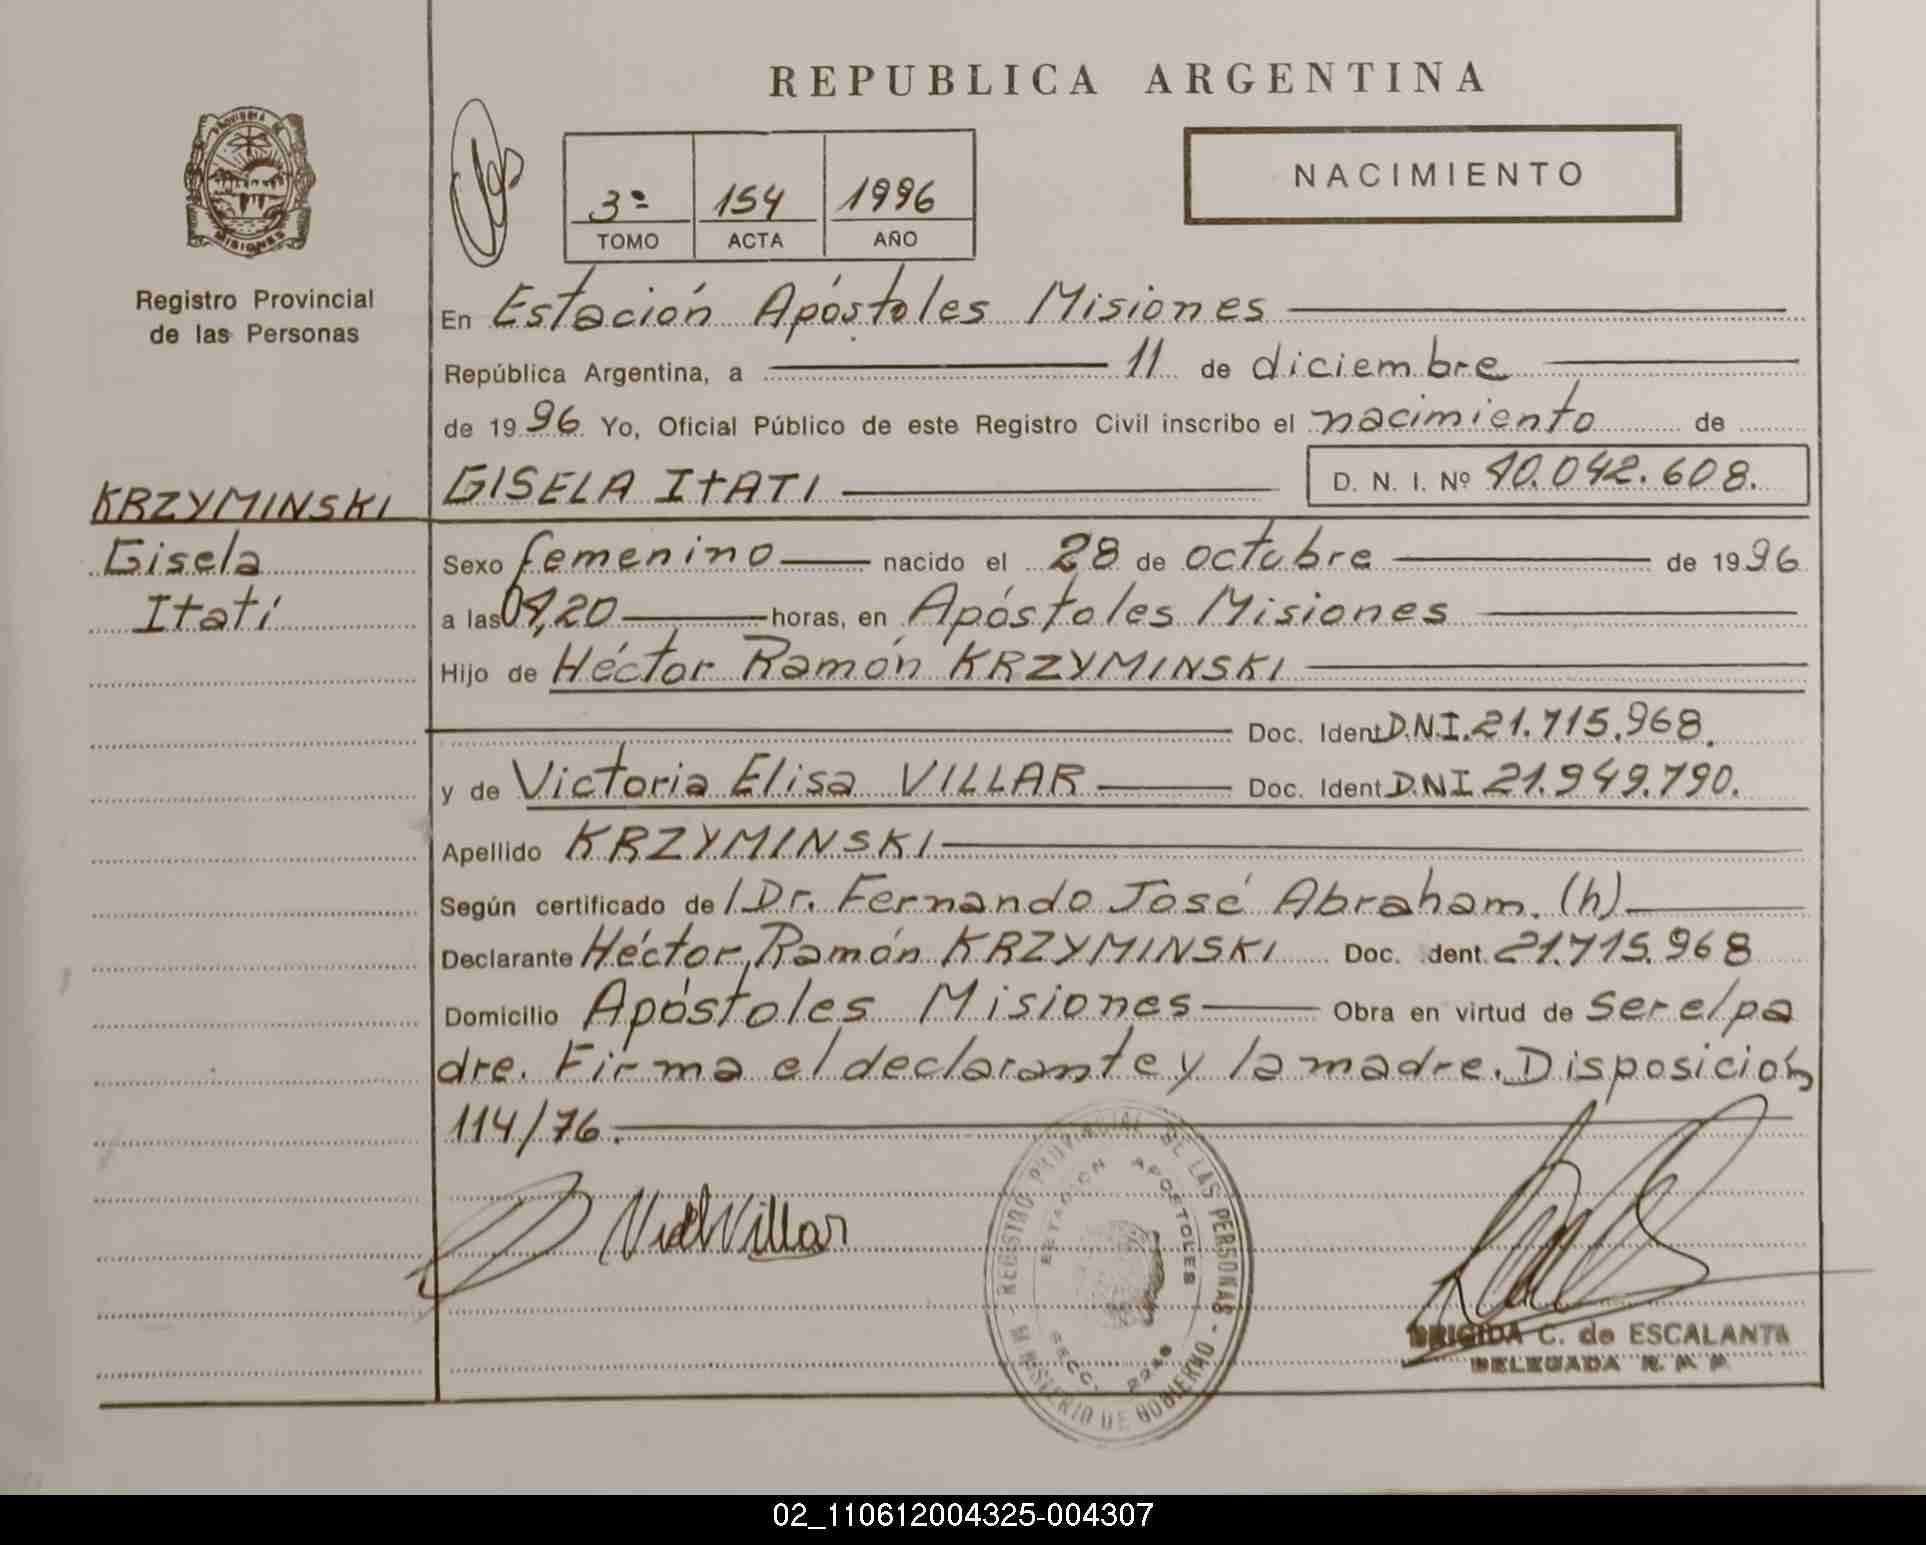 REPUBLICA ARGENTINA
PROVINCIA DE
MISIONES
Registro Provincial
de las Personas
3º 154 1996
TOMO ACTA AÑO
NACIMIENTO
En Estación Apóstoles Misiones
República Argentina, a 11 de diciembre
de 1996 Yo, Oficial Público de este Registro Civil inscribo el nacimiento de
KRZYMINSKI
Gisela
Itatí
GISELA ItATI D. N. I. Nº 40.042.608.
Sexo femenino nacido el 28 de octubre de 1996
a las 04,20 horas, en Apóstoles Misiones
Hijo de Héctor Ramón KRZYMINSKI
Doc. Ident D.N.I. 21.715.968.
y de Victoria Elisa VILLAR Doc. Ident D.NI 21.949.790.
Apellido KRZYMINSKI
Según certificado de l Dr. Fernando José Abraham. (h)
Declarante Héctor Ramón KRZYMINSKI Doc. dent. 21.715.968
Domicilio Apóstoles Misiones Obra en virtud de Ser el pa
dre. Firma el declarante y la madre. Disposición
114/76.
Villar
REGISTRO PROVINCIAL DE LAS PERSONAS - MINISTERIO DE GOBIERNO -
ESTACION APOSTOLES
SECC.
BRIGIDA C. de ESCALANTA
DELEGADA
02_110612004325-004307